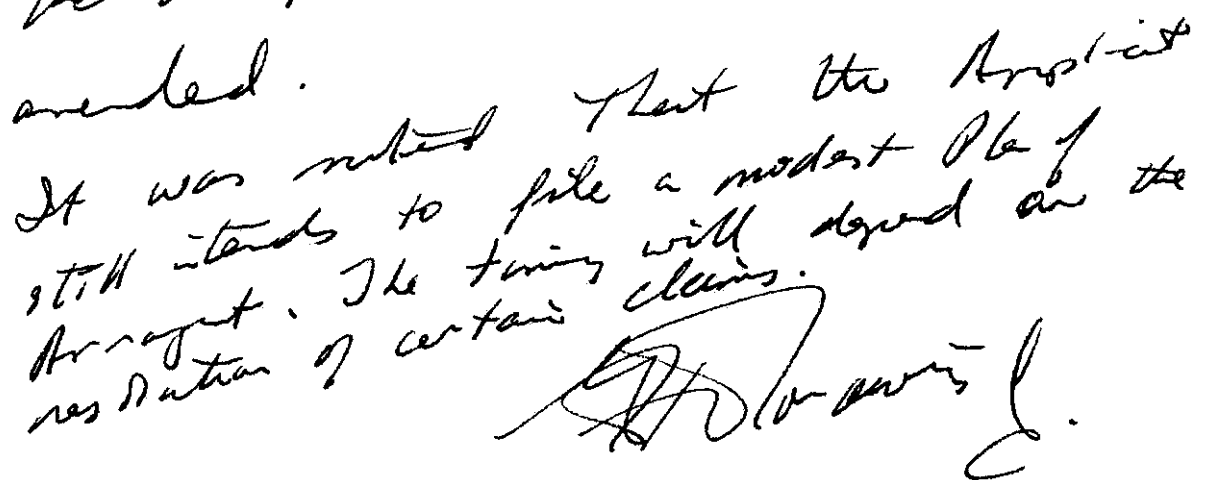 amended.
It was noted that the Applicant
still intends to file a modest Plan of
Arrangement. The timing will depend on the
resolution of certain claims.
J.